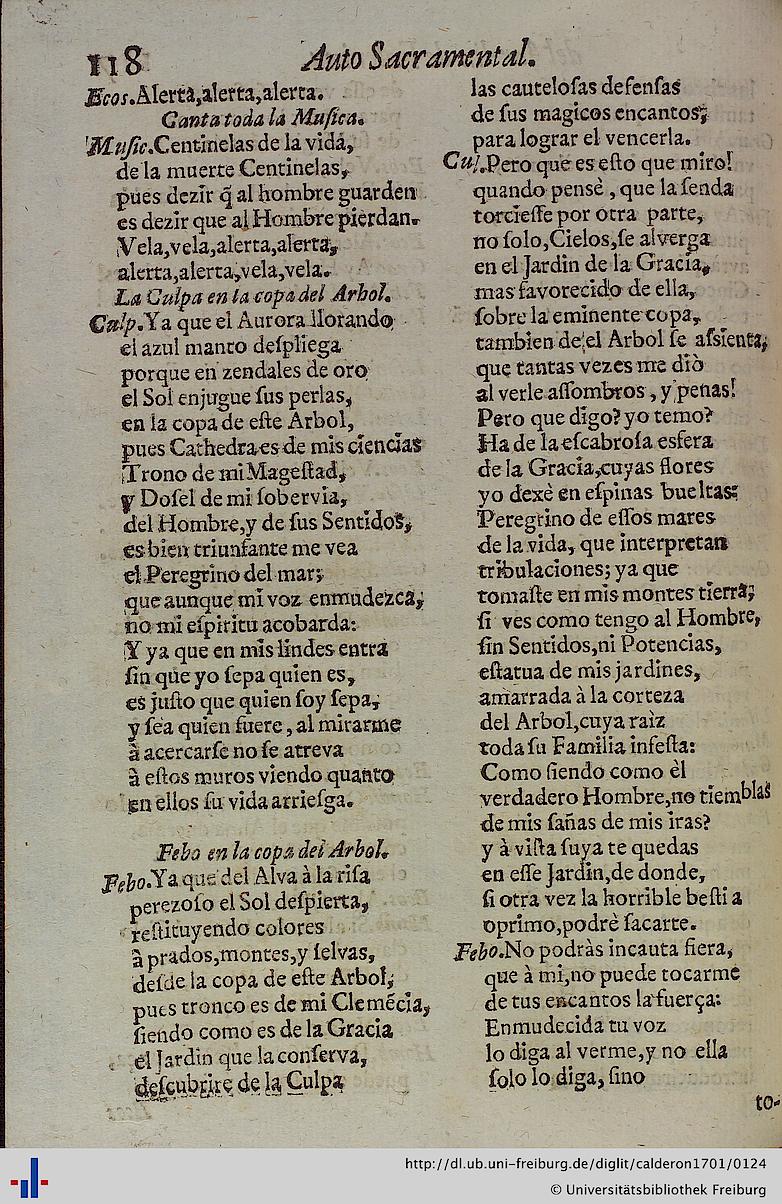 118
Auto Sacramental.
Ecos.Alerta,alerta,alerta.
Canta toda la Muſica.
Muſic.Centinelas de la vida,
de la muerte Centinelas,
pues dezir q̃ al hombre guarden
es dezir que al Hombre pierdan.
Vela,vela,alerta,alerta,
alerta,alerta,vela,vela.
La Culpa en la copa del Arbol.
Culp.Ya que el Aurora llorando
el azul manto deſpliega
porque en zendales de oro
el Sol enjugue ſus perlas,
en la copa de eſte Arbol,
pues Cathedra es de mis ciencias
Trono de mi Mageſtad,
y Doſel de mi ſobervia,
del Hombre,y de ſus Sentidos,
es bien triunfante me vea
el Peregrino del mar;
que aunque mi voz enmudezca,
no mi eſpiritu acobarda:
Y ya que en mis lindes entra
ſin que yo ſepa quien es,
es juſto que quien ſoy ſepa,
y ſea quien fuere, al mirarme
à acercarſe no ſe atreva
à eſtos muros viendo quanto
en ellos ſu vida arrieſga.
Febo en la copa del Arbol.
Febo.Ya que del Alva à la riſa
perezoſo el Sol deſpierta,
reſtituyendo colores
à prados,montes,y ſelvas,
deſde la copa de eſte Arbol,
pues tronco es de mi Clemécia,
ſiendo como es de la Gracia
el Jardin que la conſerva,
deſcubrire de la Culpa
las cauteloſas defenſas
de ſus magicos encantos;
para lograr el vencerla.
Cul.Pero que es eſto que miro!
quando pensè, que la ſenda
torcieſſe por otra parte,
no ſolo,Cielos,ſe alverga
en el Jardin de la Gracia,
mas favorecido de ella,
ſobre la eminente copa,
tambien de el Arbol ſe aſsienta,
que tantas vezes me diò
al verle aſſombros, y penas!
Pero que digo? yo temo?
Ha de la eſcabroſa esfera
de la Gracia,cuyas flores
yo dexè en eſpinas bueltas:
Peregrino de eſſos mares
de la vida, que interpretan
tribulaciones; ya que
tomaſte en mis montes tierra;
ſi ves como tengo al Hombre,
ſin Sentidos,ni Potencias,
eſtatua de mis jardines,
amarrada à la corteza
del Arbol,cuya raìz
toda ſu Familia infeſta:
Como ſiendo como èl
verdadero Hombre,no tiemblas
de mis ſañas de mis iras?
y à viſta ſuya te quedas
en eſſe Jardin,de donde,
ſi otra vez la horrible beſti a
oprimo,podrè ſacarte.
Febo.No podràs incauta fiera,
que à mi,no puede tocarme
de tus encantos la fuerça:
Enmudecida tu voz
lo diga al verme,y no ella
ſolo lo diga, ſino
to-
http://dl.ub.uni-freiburg.de/diglit/calderon1701/0124
© Universitätsbibliothek Freiburg